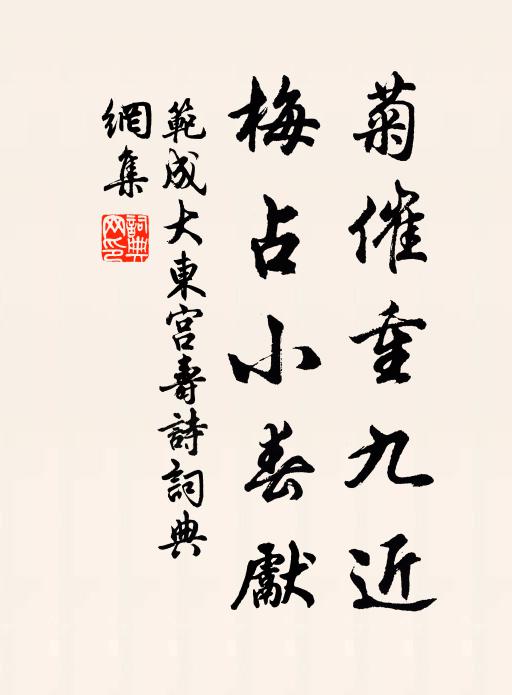 菊催重九近
梅占小春獻
範成大東宮壽詩詞典
網集
詞典
網印